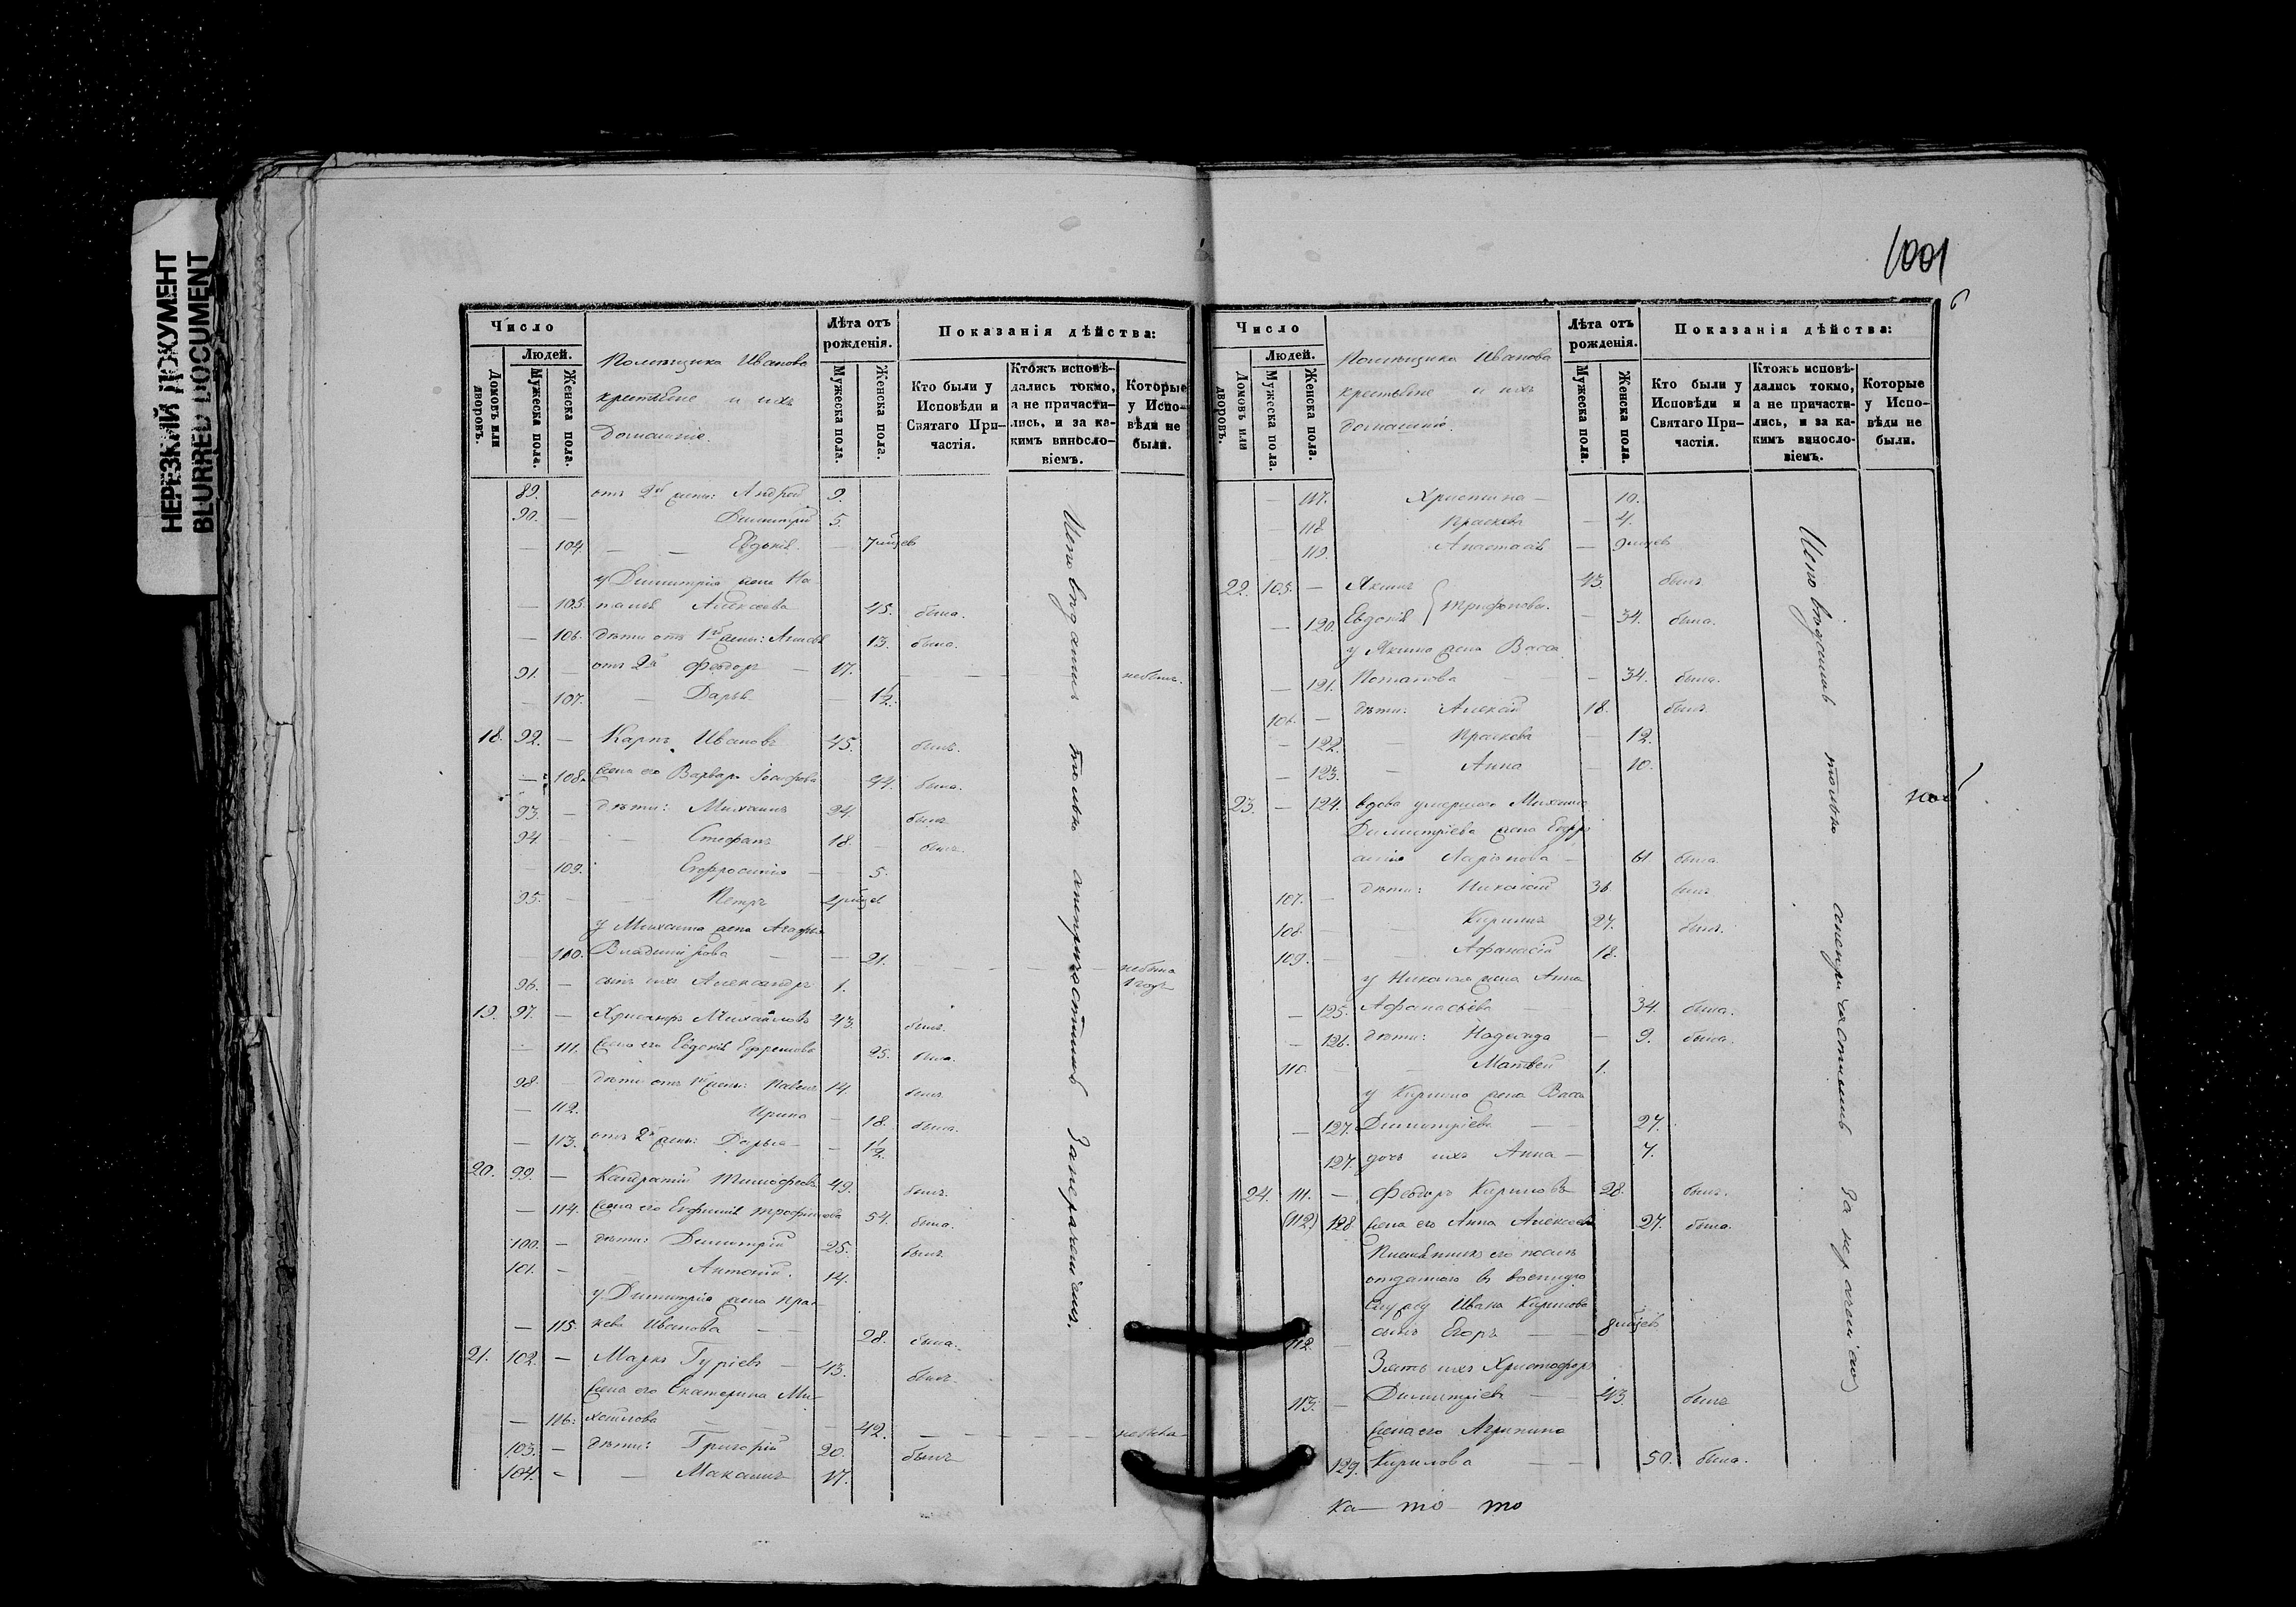 НЕРЕЗКИЙ ДОКУМЕНТ
BLURRED DOCUMENT
Число
Людей.
Домовъ или дворовъ.
Мужеска пола.
Женска пола.
Помѣщика Иванова
крестьяне и ихъ
домашніе.
Лѣта отъ рожденія.
Мужеска пола.
Женска пола.
Показанія дѣйства:
Кто были у Исповѣди и Святаго Причастія.
Ктожъ исповѣдались токмо, а не причастились, и за какимъ винословіемъ.
Которые у Исповѣди не были.
89. отъ 2й жены: Андрей 9.
90. — Димитрій 5.
— 104 — — Евдокія. — 7 мцев
у Димитрія жена На-
— 105. талья Алексѣева 45. была.
— 106. дѣти отъ 1й жены: 13. была.
91. — отъ 2й Феодоръ — 17. — — — небылъ.
— 107. — Дарья — 1½.
18. 92. — Карпъ Ивановъ 45. былъ.
— 108. жена его Варвара 44. была.
93. — дѣти: Михаилъ 24. былъ
94. — Стефанъ 18. — былъ.
109. Евфросинія — — 5.
95. — — Петръ
у Михаила жена Агафья
— 110. Владимірова — — 21. — — — — небыла
96. — сынъ ихъ Александръ 1.
19. 97. — Михайловъ 43. былъ.
— 111. жена его Евдокія Ефремова 25. была.
98. — дѣти отъ 1й жены: Павелъ 14. былъ.
— 112. Ирина — 18. была.
— 113. отъ 2й жены: Дарья — — 1½.
20. 99. — Кандратій Тимофеевъ 49. былъ.
— 114. жена его Евфимія Трофимова 54. была.
100. — дѣти: Димитрій 25. былъ.
101. — — Антоній. 14.
у Димитрія жена Прас-
— 115. кева Иванова — — 28. была.
21. 102. — Маркъ Гурьевъ — 43. былъ.
жена его Екатерина Ми-
— 116. хайлова — — — 42. — — — —
103. — дѣти: Григорій 20. былъ
104. — — Максимъ 17.
Исповѣдались только
1001
6
Число
Людей.
Домовъ или дворовъ.
Мужеска пола.
Женска пола.
Помѣщика Иванова
крестьяне и ихъ
домашніе.
Лѣта отъ рожденія.
Мужеска пола.
Женска пола.
Показанія дѣйства:
Кто были у Исповѣди и Святаго Причастія.
Ктожъ исповѣдались токмо, а не причастились, и за какимъ винословіемъ.
Которые у Исповѣди не были.
— 117. Христина — 10.
— 118. Праскева — 4.
— 119. Анастасія — 9 мцев
22. 105. — Якимъ 43. былъ.
— 120. Евдокія Трифоновы. — 34. была.
у Якима жена Васса
— 121. Потапова — — 34. была.
106. — дѣти: Алексій 18. былъ.
— 122. — Праскева — 12.
— 123. — Анна — 10.
23. — 124. вдова умершаго Михаила
Димитріева жена Евфр
Ларіонова — 61 была.
107. — дѣти: Николай 36. былъ
108. — Кирилъ 27. былъ.
109. — — Афанасій 18.
у Николая жена Анна
— 125. Афанасьева — 34. была.
— 126. дѣти: Надежда — 9. была.
110. — — Матвей 1.
у Кирила жена Васса
— 127. Димитріева — — 27.
127. дочь ихъ Анна — 7.
24. 111. — Феодоръ Кириловъ 28. былъ.
(112) 128. жена его Анна Алексѣева 27. была.
отданнаго в военную
службу Ивана Кирилова
112. — сынъ Егоръ — — 8 мцев
Зять ихъ Христофоръ
113. — Димитріевъ — 43 былъ
жена его Агрипина
129. Кирилова — — 50. была.
Исповѣдались только